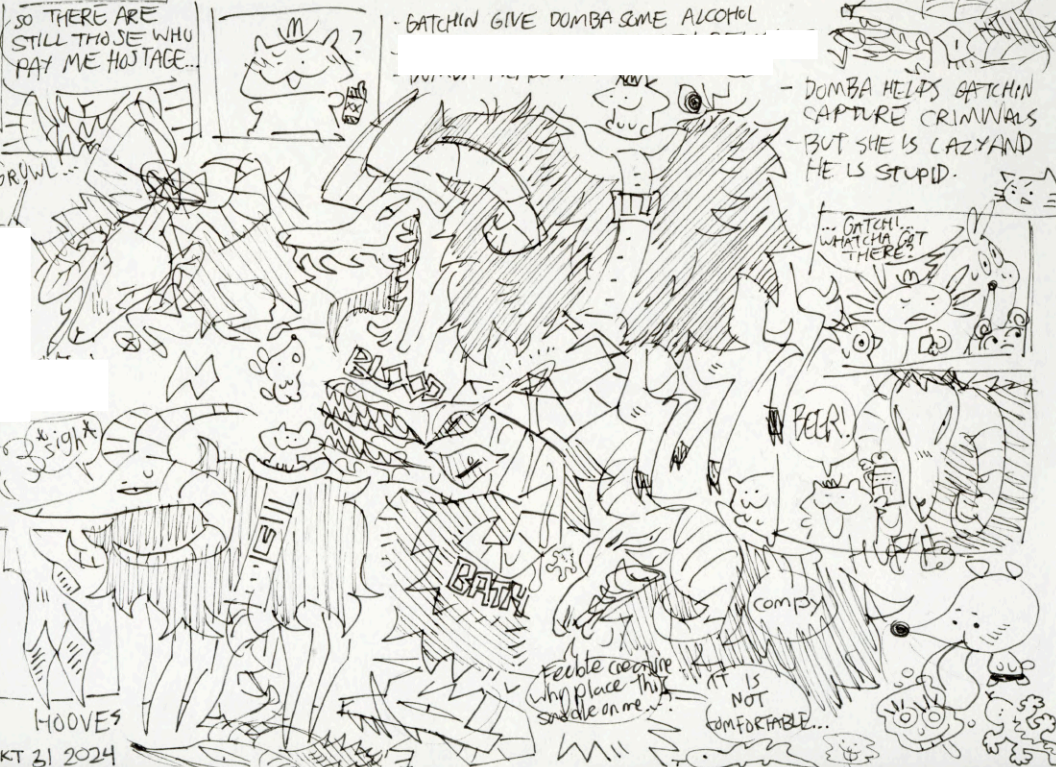 SO THERE ARE
STILL THOSE WHO
PAY ME HOSTAGE...
?
XX
- GATCHIN GIVE DOMBA SOME ALCOHOL
- DOMBA HELPS GATCHIN
CAPTURE CRIMINALS
- BUT SHE IS LAZY AND
HE IS STUPID.
GROWL...
... GATCH!...
WHATCHA GOT
THERE?
BLOOD
BEER!
*sigh*
BATH
compy
Feeble creature...
why place this
saddle on me...?
IT IS
NOT
COMFORTABLE...
HOOVES
OKT 31 2024